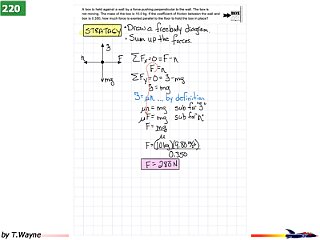 220
A box is held against a wall by a force pushing perpendicular to the wall. The box is
not moving. The mass of the box is 10.0 kg. If the coefficient of friction between the wall and
box is 0.350, how much force is exerted parallel to the floor to hold the box in place?
STRATAGY
• Draw a freebody diagram.
• Sum up the forces.
n F mg
ΣFx=0=F-n
F=n
ΣFy=0=ℑ-mg
ℑ=mg
ℑ=μn ... by definition
μn=mg sub for "ℑ"
μF=mg sub for "n"
F=mg/μ
F=(10kg)(9.80 m/s²)/0.350
F=280N
by T.Wayne